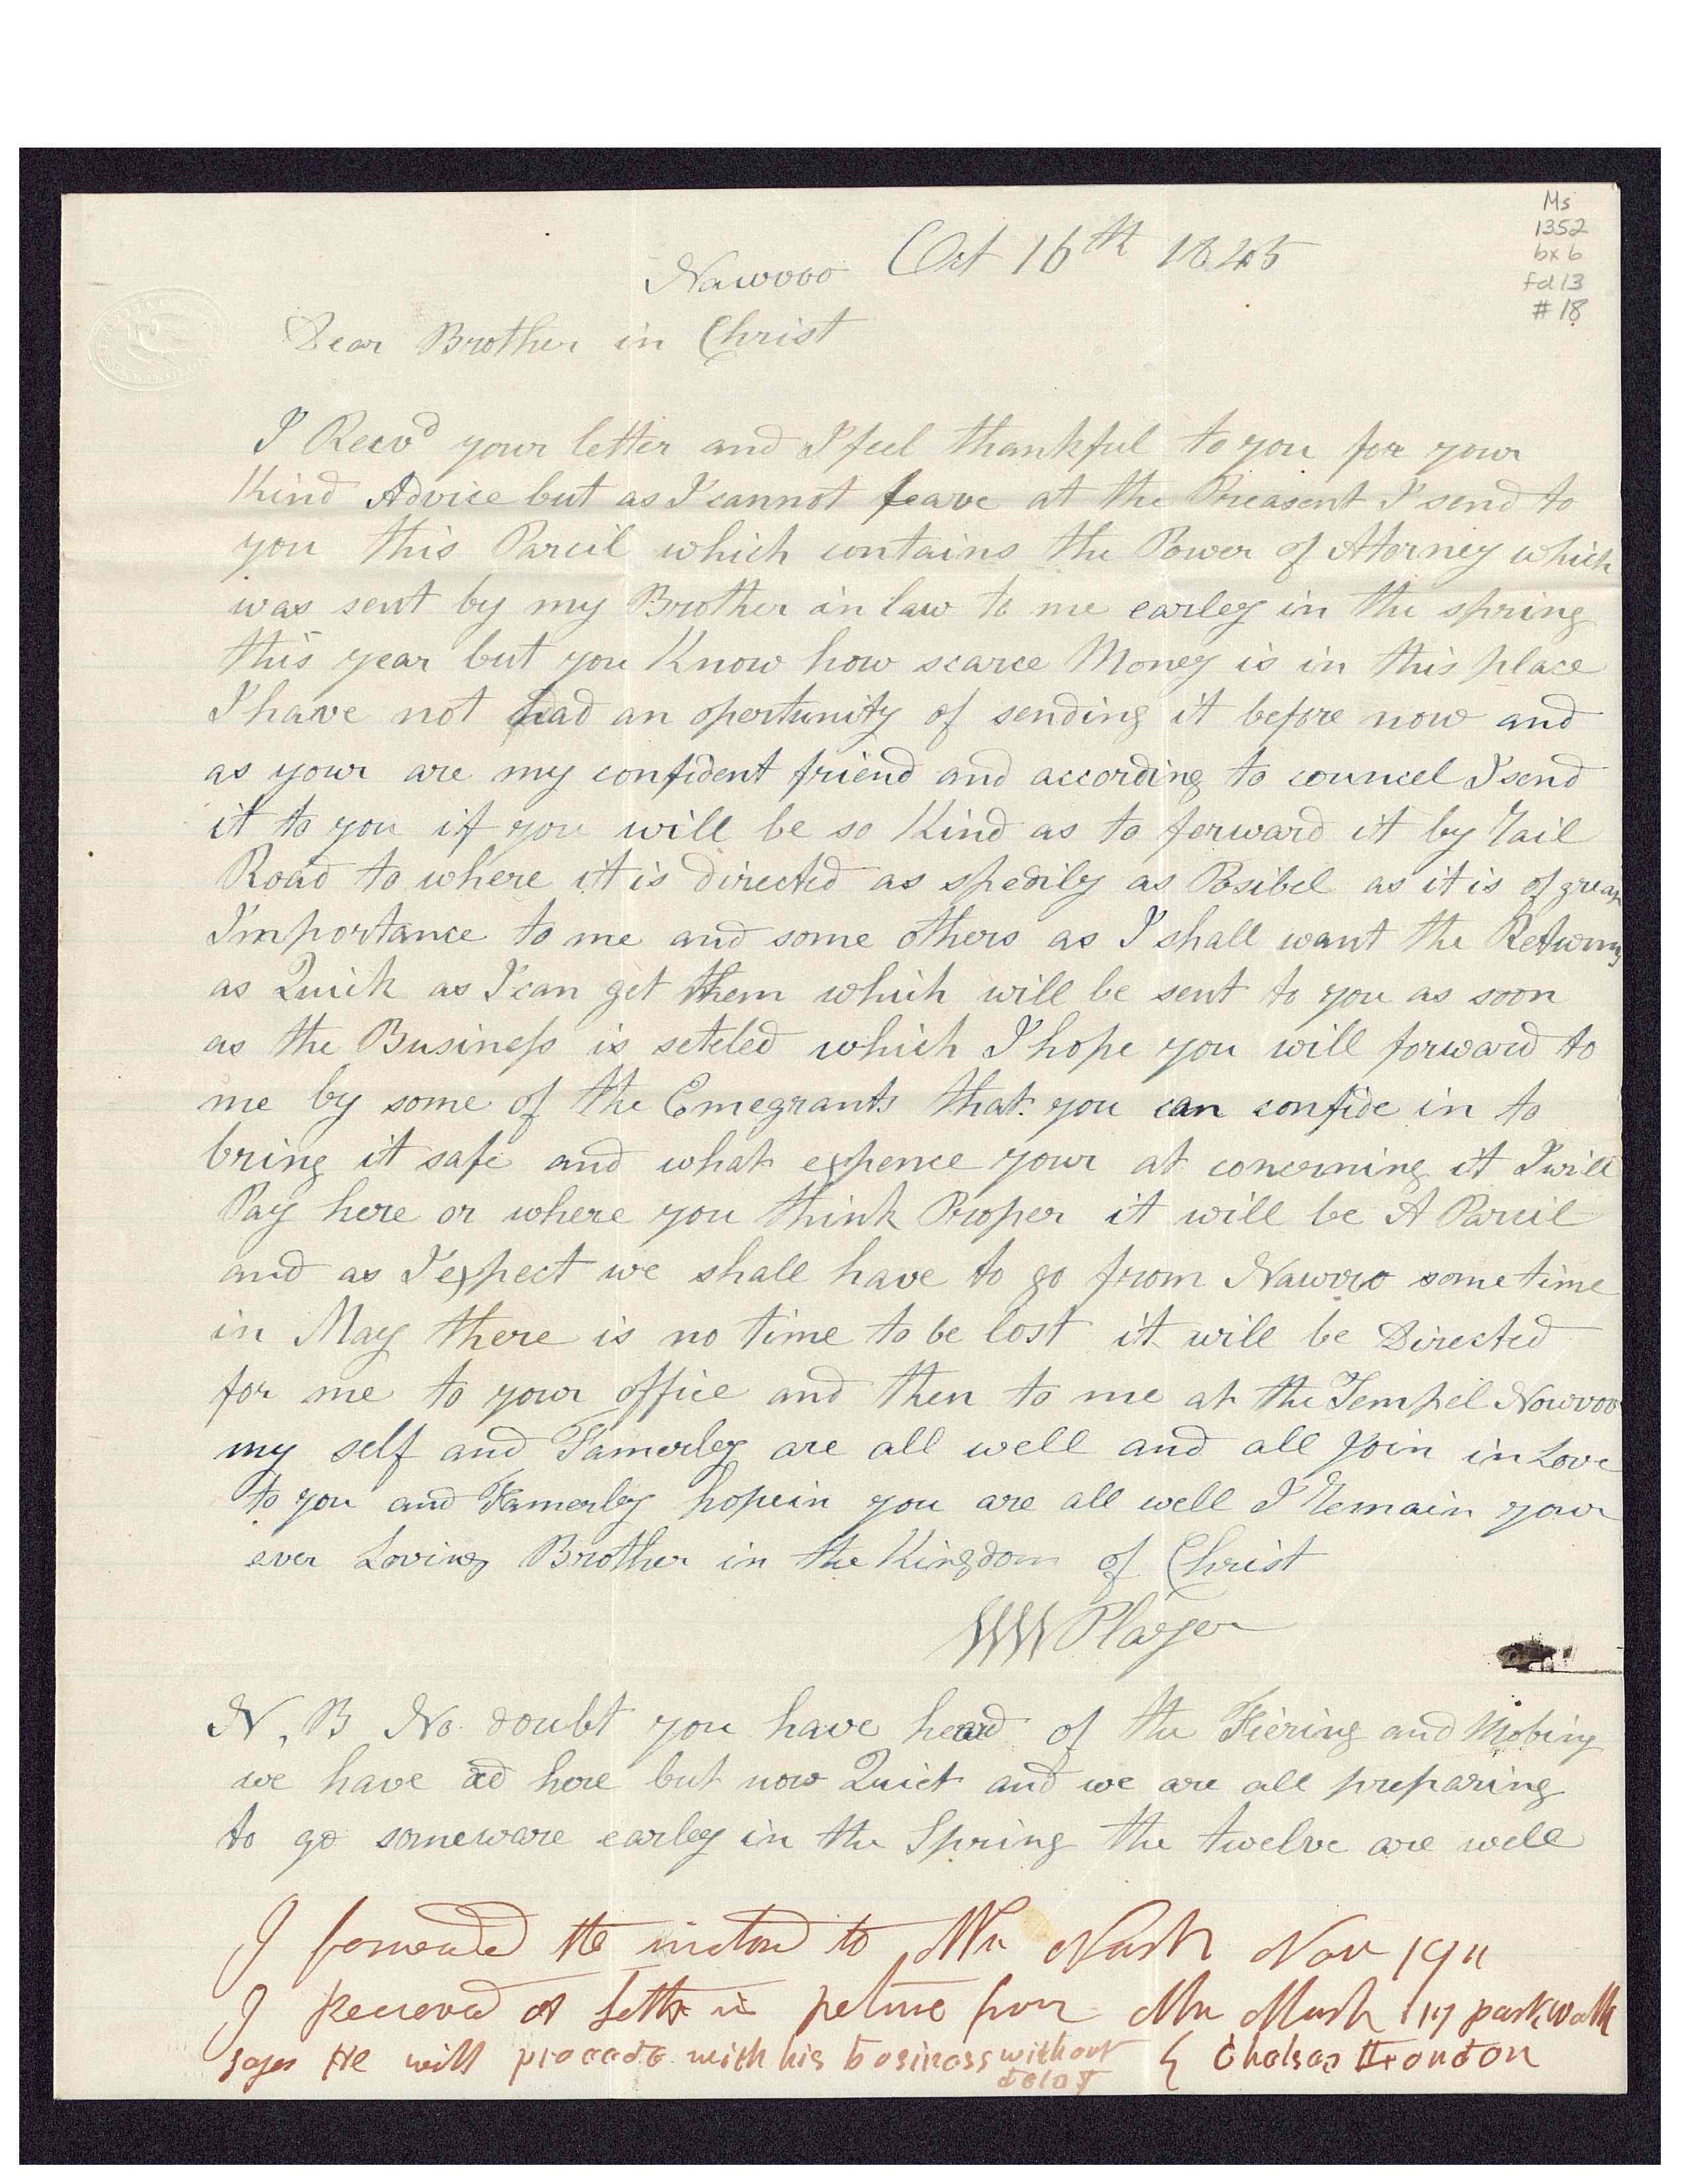 Ms
1352
bx 6
fd 13
# 18
Nawooo Oct 16th 1845
Dear Brother in Christ
I Recvd your letter and I feel thankful to you for your
Kind Advice but as I cannot leave at the Preasent I send to
you this Parcil which contains the Power of Attorney which
was sent by my Brother in law to me earley in the spring
this year but you Know how scarce Money is in this place
I have not had an opertunity of sending it before now and
as your are my confident friend and according to councel I send
it to you if you will be so Kind as to forward it by rail
Road to where it is directed as spedily as Posibel as it is of great
Importance to me and some others as I shall want the Returns
as Quick as I can get them which will be sent to you as soon
as the Business is seteled which I hope you will forward to
me by some of the Emegrants that you can confide in to
bring it safe and what expence your at concerning it I will
Pay here or where you think Proper it will be A Parcil
and as I expect we shall have to go from Nawooo some time
in May there is no time to be lost it will be Directed
for me to your office and then to me at the Tempel Nowvoo
my self and Famerley are all well and all Join in Love
to you and Famerley hopein you are all well I remain your
ever Loving Brother in the Kingdom of Christ
WW Player
N. B No doubt you have heard of the Fiering and Mobing
we have ad here but now Quiet and we are all preparing
to go someware earley in the Spring the twelve are well
I forwarded the inclosed to Mr Nash Nov 19
I Received a letter in return from Mr Nash 117 park walk
says He will proceede with his business without { Chelsea London
delay